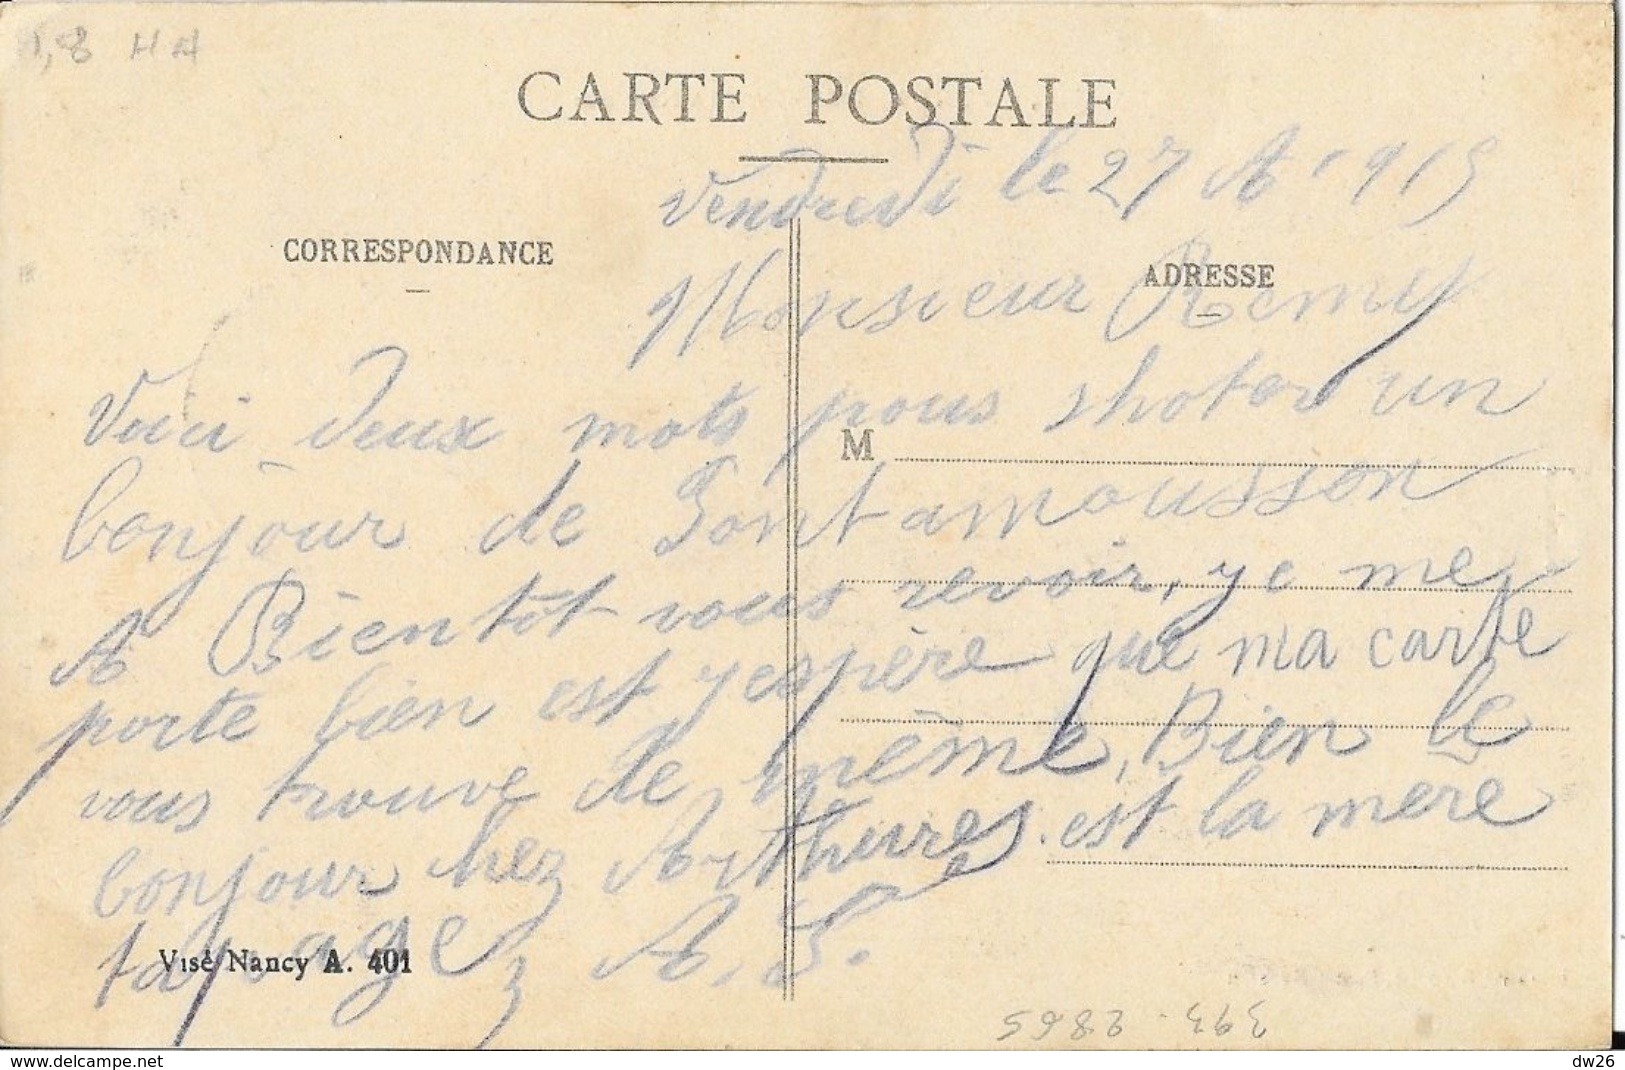 1,8 HH
CARTE POSTALE
Vendredi le 27 A 1915
CORRESPONDANCE
ADRESSE
Monsieur Remy
Voici deux mots pous shoter un
M
bonjour de Pontamousson
A Bientôt vous revoir, ye me
porte bien est yespère que ma carte
vous trouve de même, Bien le
bonjour hez Arthures est la mere
tapagez A. S.
Visé Nancy A. 401
393 - 2865
dw26